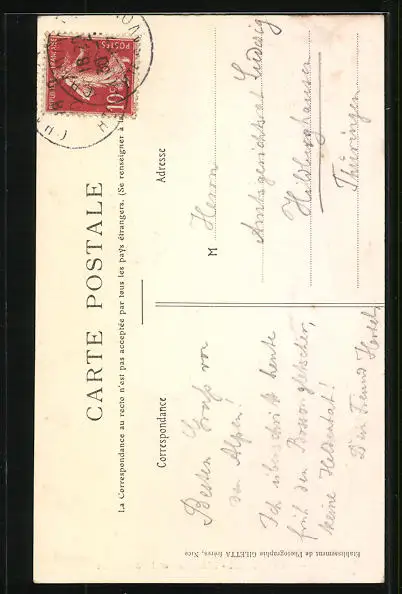 CARTE POSTALE
La Correspondance au recto n'est pas acceptée par tous les pays étrangers. (Se renseigner à la
Correspondance
Besten Gruß von
den Alpen!
Ich überschritt heute
früh den Bossongletscher,
keine Heldentat!
Dein Freund Hertel.
Adresse
M Herrn
Amtsgerichtsrat Ludwig
Hildburghausen
Thüringen
Etablissement de Photographie GILETTA frères, Nice
POSTES
10